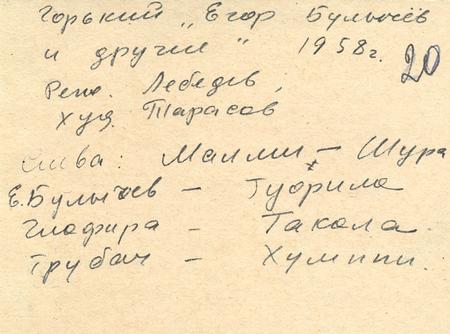 Горький „Егор Булычёв
и другие" 1958г. 20
Реж. Лебедев,
Худ. Тарасов
слева: Малми - Шура
Е.Булычев -
Глафира - Такала.
Трубач -